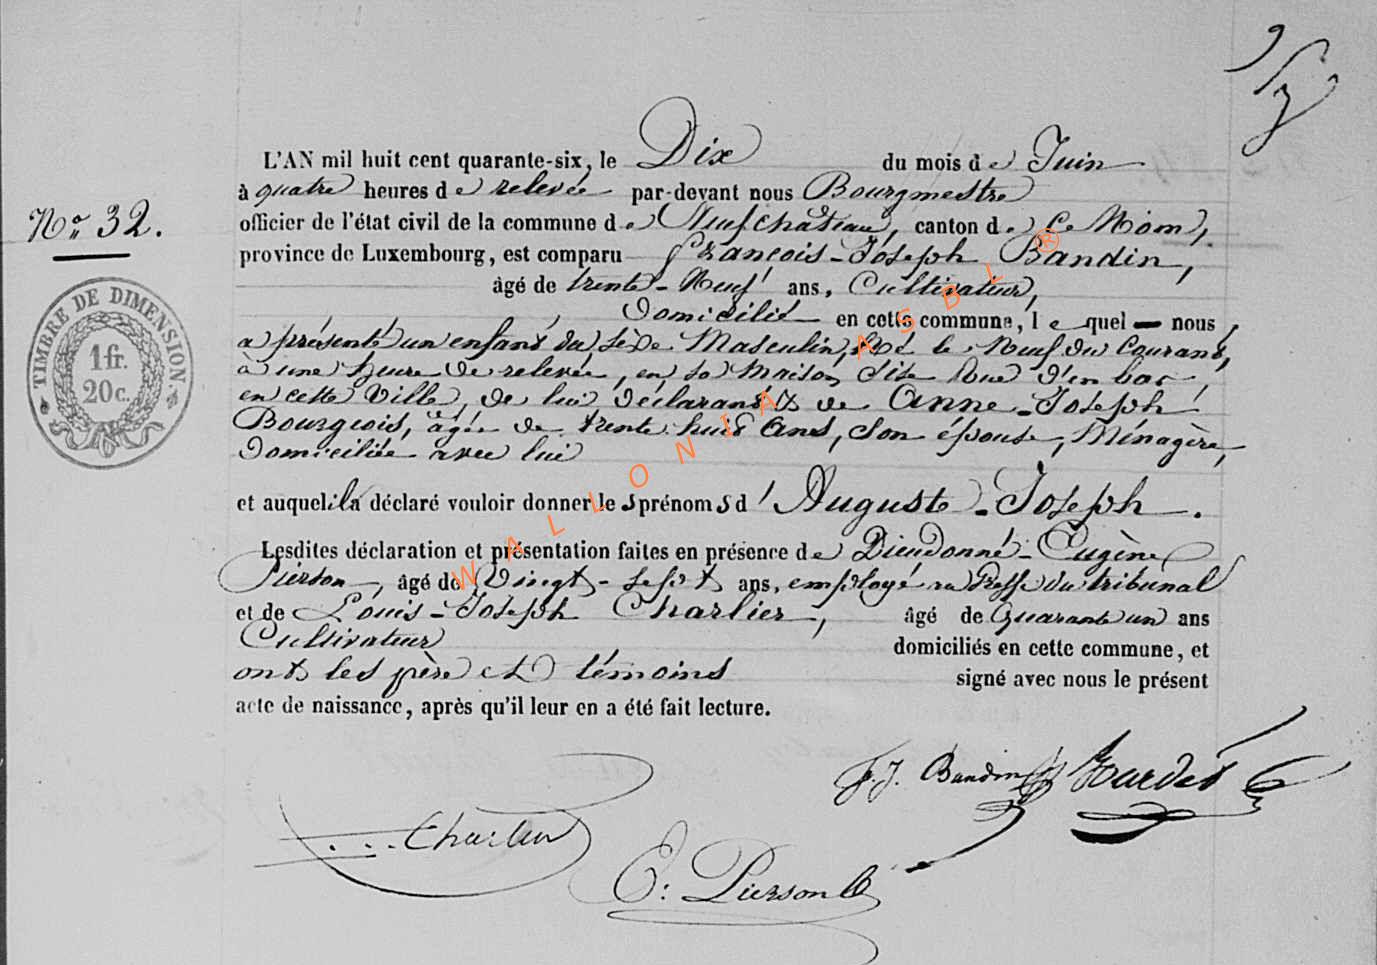 L'AN mil huit cent quarante-six, le Dix du mois de Juin
à quatre heures de relevée par-devant nous Bourgmestre
officier de l'état civil de la commune de Neufchateau, canton de Le Mom,
province de Luxembourg, est comparu François-Joseph Bandin,
âgé de trente-Neuf ans, Cultivateur,
Domicilié en cette commune, lequel nous
a présenté un enfant du sèxe Masculin, Né le Neuf du Courant,
à une heure de relevée, en sa Maison Sise Rue d'en bas,
en cette Ville, de lui déclarant & de Anne-Joseph
Bourgeois, âgée de trente huit Ans, Son épouse, Ménagère,
Domiciliée avec lui
et auquel il a déclaré vouloir donner les prénoms d'Auguste-Joseph.
Lesdites déclaration et présentation faites en présence de Dieudonné-Eugène
Pierson, âgé de Vingt-sept ans, employé au Greffe du tribunal
et de Louis-Joseph Charlier, âgé de Quarante un ans
Cultivateur domiciliés en cette commune, et
ont les père et témoins signé avec nous le présent
acte de naissance, après qu'il leur en a été fait lecture.
Nº 32.
TIMBRE DE DIMENSION.
1 fr.
20 c.
WALLONIA ASBL ®
F. J. Bandin
Charlier
E: Pierson